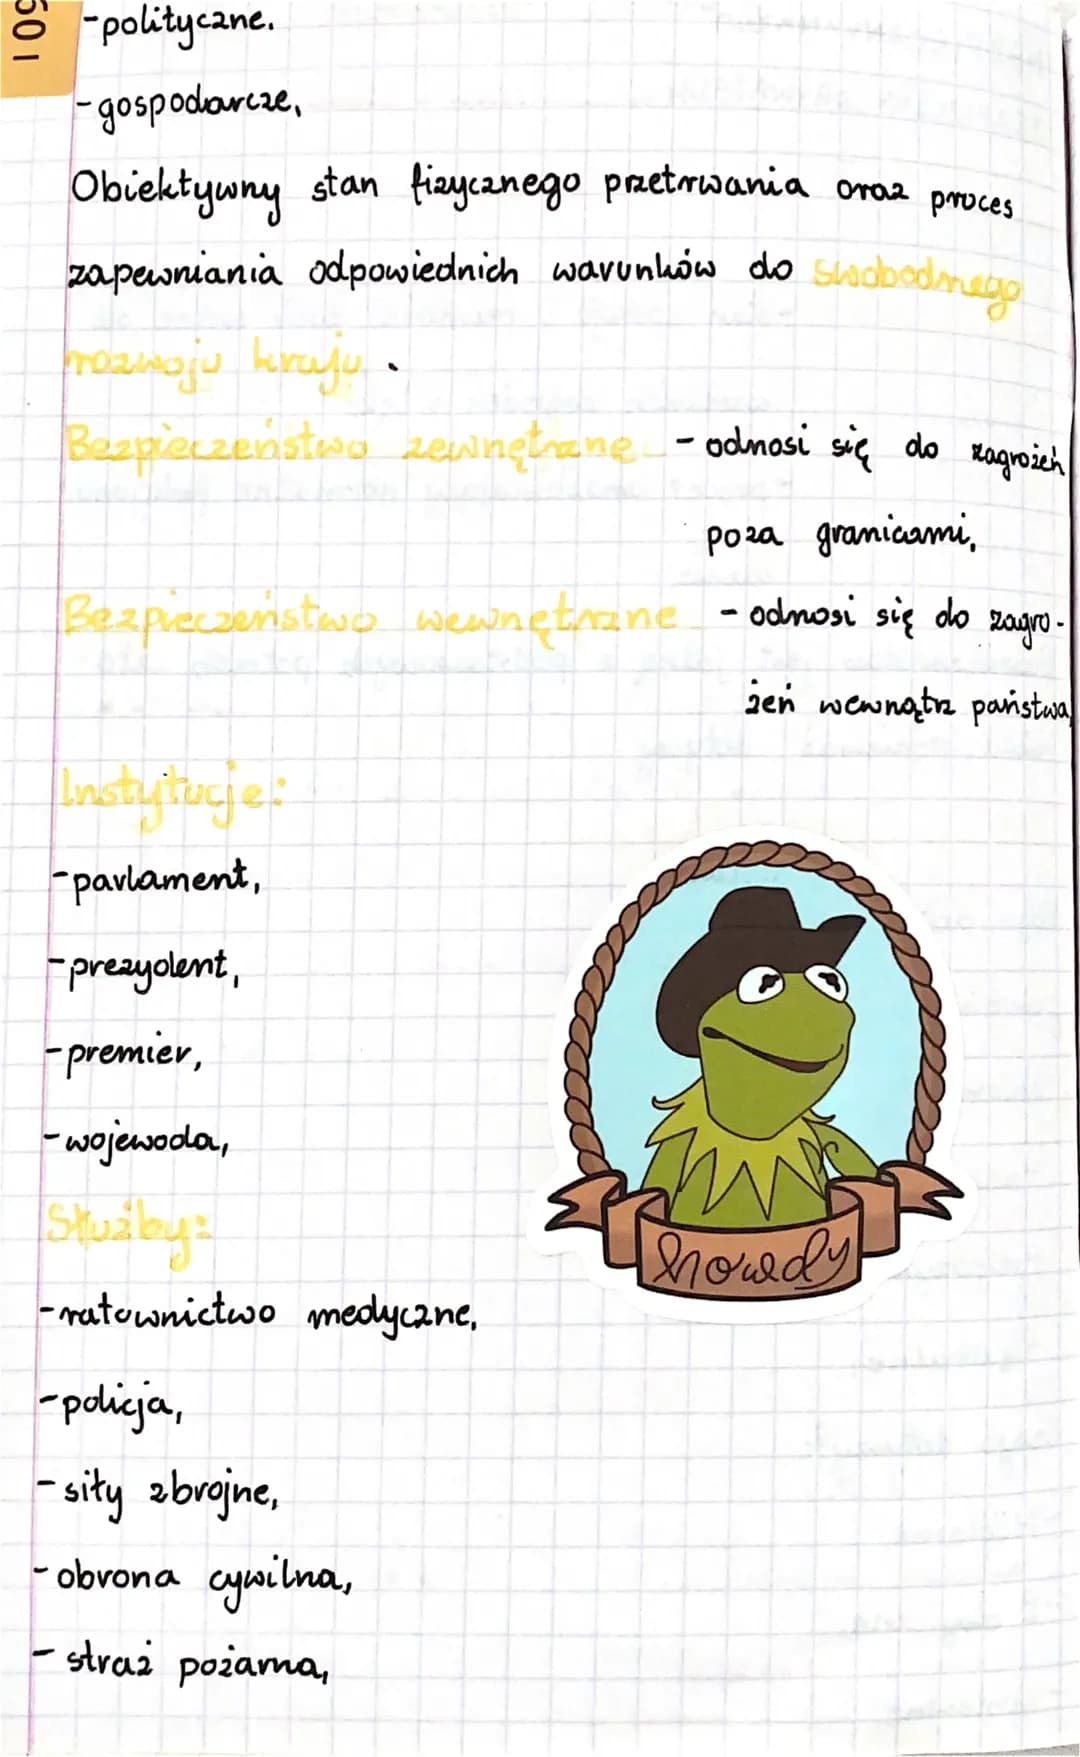 -polityczne.
-gospodarcze,
Obiektywny stan fizycznego przetrwania oraz proces
zapewniania odpowiednich warunków do swobodnego
rozwoju kraju.
Bezpieczeństwo zewnętrzne - odnosi się do zagrożeń
poza granicami,
Bezpieczeństwo wewnętrzne - odnosi się do zagro-
żeń wewnątrz państwa,
Instytucje:
-parlament,
-prezydent,
-premier,
-wojewoda,
Służby:
howdy
-ratownictwo medyczne,
-policja,
-siły zbrojne,
-obrona cywilna,
-straż pożarna,